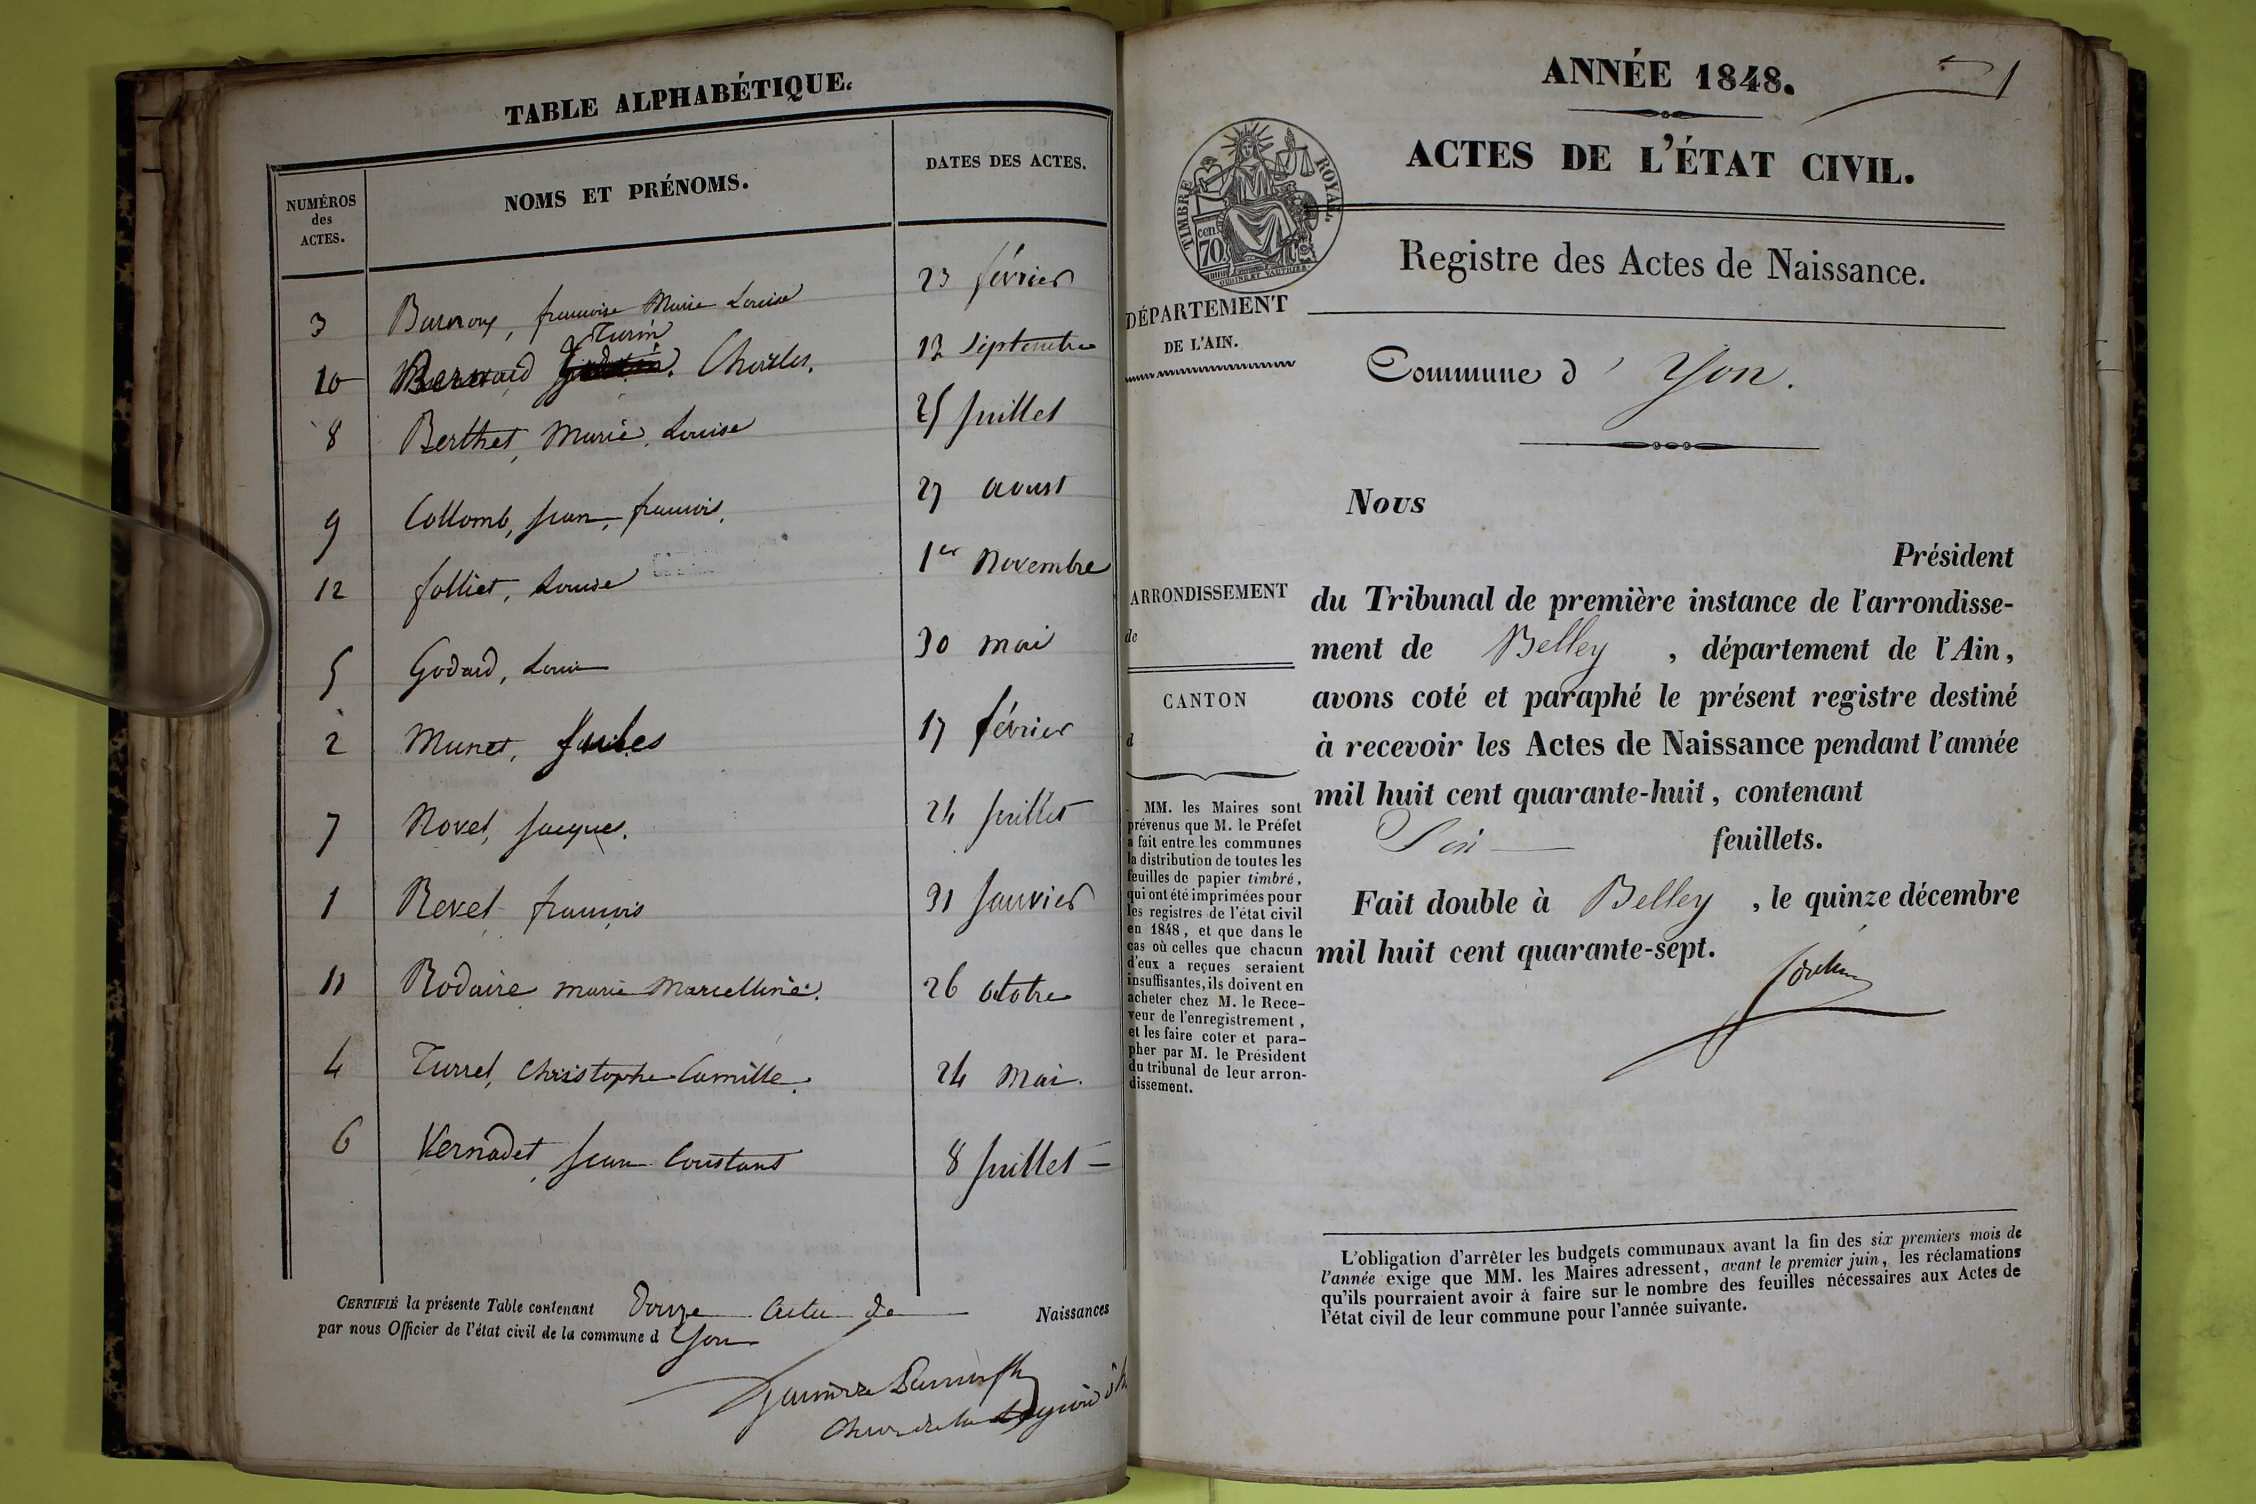 TABLE ALPHABÉTIQUE.
NUMÉROS
des
ACTES.
NOMS ET PRÉNOMS.
DATES DES ACTES.
3 françoise Marie Louise 23 février
Turin
10 Bernard Charles. 12 Septembre
8 Berthet, Marie Louise 25 Juillet
9 Collomb, Jean, françois. 27 aoust
12 folliet, Louise 1er Novembre
5 Godard, Louise 30 mai
2 Munet, Jules 17 février
7 Novel, Jacques. 24 Juillet
1 Revel françois 31 Janvier
11 Rodaire marie Marcelline. 26 octobre
4 Turrel, Christophe Camille. 24 Mai.
6 Vernadet, Jean Constant 8 Juillet –
CERTIFIÉ la présente Table contenant Douze Actes de Naissances
par nous Officier de l'état civil de la commune d Yon
ANNÉE 1848.
1
ACTES DE L'ÉTAT CIVIL.
TIMBRE ROYAL.
70 cen
Registre des Actes de Naissance.
DÉPARTEMENT
DE L'AIN.
Commune d' Yon.
Nous
Président
ARRONDISSEMENT
de
du Tribunal de première instance de l'arrondisse-
ment de Belley , département de l'Ain,
CANTON
d
avons coté et paraphé le présent registre destiné
à recevoir les Actes de Naissance pendant l'année
mil huit cent quarante-huit, contenant
Six feuillets.
Fait double à Belley , le quinze décembre
mil huit cent quarante-sept.
MM. les Maires sont
prévenus que M. le Préfet
a fait entre les communes
la distribution de toutes les
feuilles de papier timbré,
qui ont été imprimées pour
les registres de l'état civil
en 1848, et que dans le
cas où celles que chacun
d'eux a reçues seraient
insuffisantes, ils doivent en
acheter chez M. le Rece-
veur de l'enregistrement,
et les faire coter et para-
pher par M. le Président
du tribunal de leur arron-
dissement.
L'obligation d'arrêter les budgets communaux avant la fin des six premiers mois de
l'année exige que MM. les Maires adressent, avant le premier juin, les réclamations
qu'ils pourraient avoir à faire sur le nombre des feuilles nécessaires aux Actes de
l'état civil de leur commune pour l'année suivante.